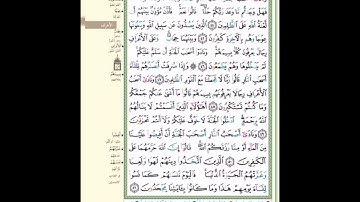 حَقًّا قَالُوا۟ نَعَمْ فَأَذَّنَ مُؤَذِّنٌۢ بَيْنَهُمْ أَن
لَّعْنَةُ ٱللَّهِ عَلَى ٱلظَّـٰلِمِينَ ٤٤ ٱلَّذِينَ يَصُدُّونَ عَن سَبِيلِ ٱللَّهِ وَيَبْغُونَهَا
عِوَجًا وَهُم بِٱلْـَٔاخِرَةِ كَـٰفِرُونَ ٤٥ وَبَيْنَهُمَا حِجَابٌ وَعَلَى ٱلْأَعْرَافِ
رِجَالٌ يَعْرِفُونَ كُلًّۢا بِسِيمَىٰهُمْ وَنَادَوْا۟ أَصْحَـٰبَ ٱلْجَنَّةِ أَن سَلَـٰمٌ عَلَيْكُمْ
لَمْ يَدْخُلُوهَا وَهُمْ يَطْمَعُونَ ٤٦ وَإِذَا صُرِفَتْ أَبْصَـٰرُهُمْ تِلْقَآءَ
أَصْحَـٰبِ ٱلنَّارِ قَالُوا۟ رَبَّنَا لَا تَجْعَلْنَا مَعَ ٱلْقَوْمِ ٱلظَّـٰلِمِينَ ٤٧ وَنَادَىٰٓ أَصْحَـٰبُ
ٱلْأَعْرَافِ رِجَالًا يَعْرِفُونَهُم بِسِيمَىٰهُمْ قَالُوا۟ مَآ أَغْنَىٰ عَنكُمْ جَمْعُكُمْ
وَمَا كُنتُمْ تَسْتَكْبِرُونَ ٤٨ أَهَـٰٓؤُلَآءِ ٱلَّذِينَ أَقْسَمْتُمْ لَا يَنَالُهُمُ
ٱللَّهُ بِرَحْمَةٍ ٱدْخُلُوا۟ ٱلْجَنَّةَ لَا خَوْفٌ عَلَيْكُمْ وَلَآ أَنتُمْ تَحْزَنُونَ
٤٩ وَنَادَىٰٓ أَصْحَـٰبُ ٱلنَّارِ أَصْحَـٰبَ ٱلْجَنَّةِ أَنْ أَفِيضُوا۟ عَلَيْنَا
مِنَ ٱلْمَآءِ أَوْ مِمَّا رَزَقَكُمُ ٱللَّهُ قَالُوٓا۟ إِنَّ ٱللَّهَ حَرَّمَهُمَا عَلَى
ٱلْكَـٰفِرِينَ ٥٠ ٱلَّذِينَ ٱتَّخَذُوا۟ دِينَهُمْ لَهْوًا وَلَعِبًا
وَغَرَّتْهُمُ ٱلْحَيَوٰةُ ٱلدُّنْيَا فَٱلْيَوْمَ نَنسَىٰهُمْ كَمَا نَسُوا۟
لِقَآءَ يَوْمِهِمْ هَـٰذَا وَمَا كَانُوا۟ بِـَٔايَـٰتِنَا يَجْحَدُونَ ٥١